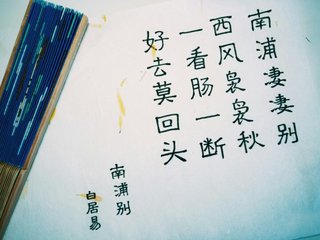 南浦凄凄别
西风袅袅秋
一看肠一断
好去莫回头
南浦别
白居易